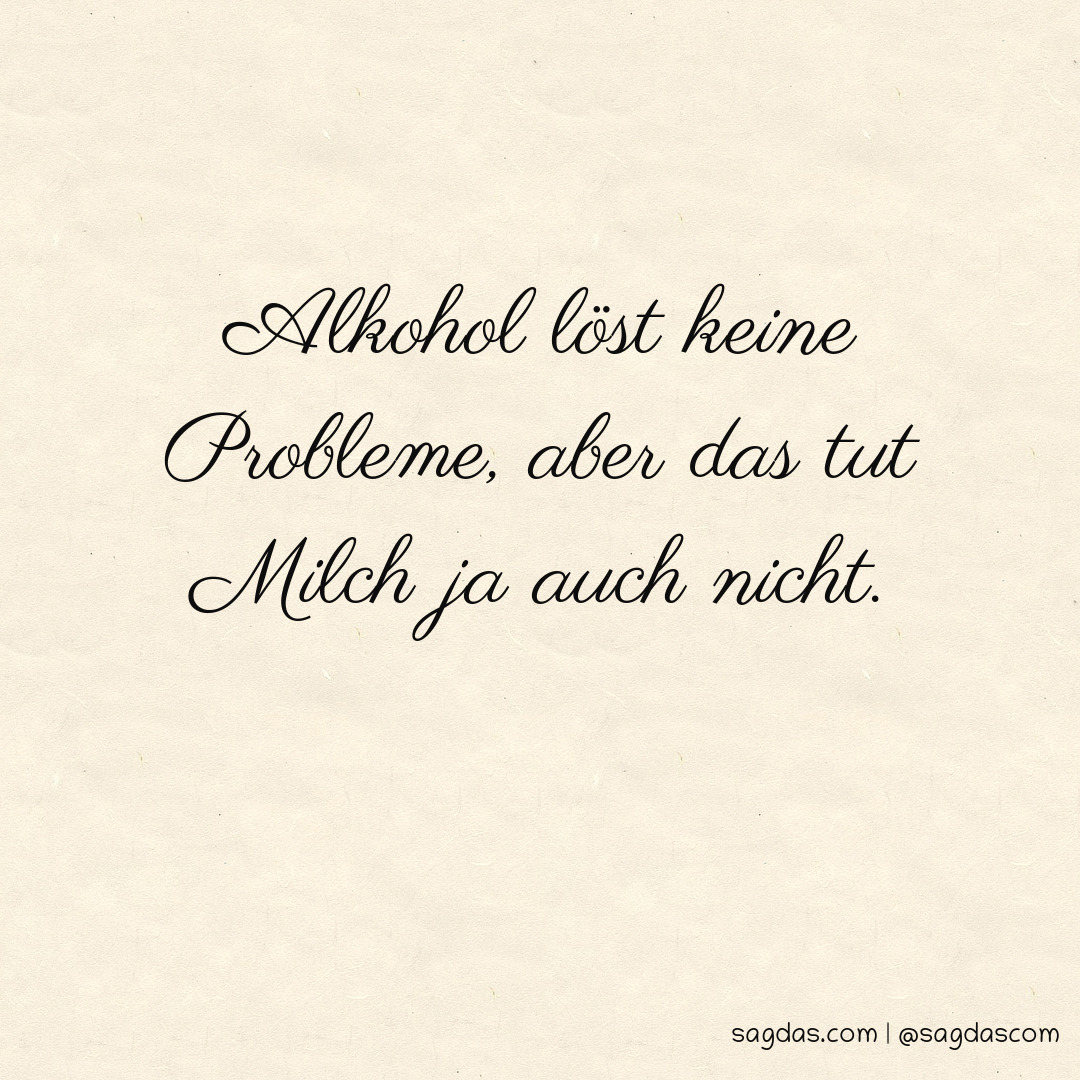 Alkohol löst keine
Probleme, aber das tut
Milch ja auch nicht.
sagdas.com | @sagdascom